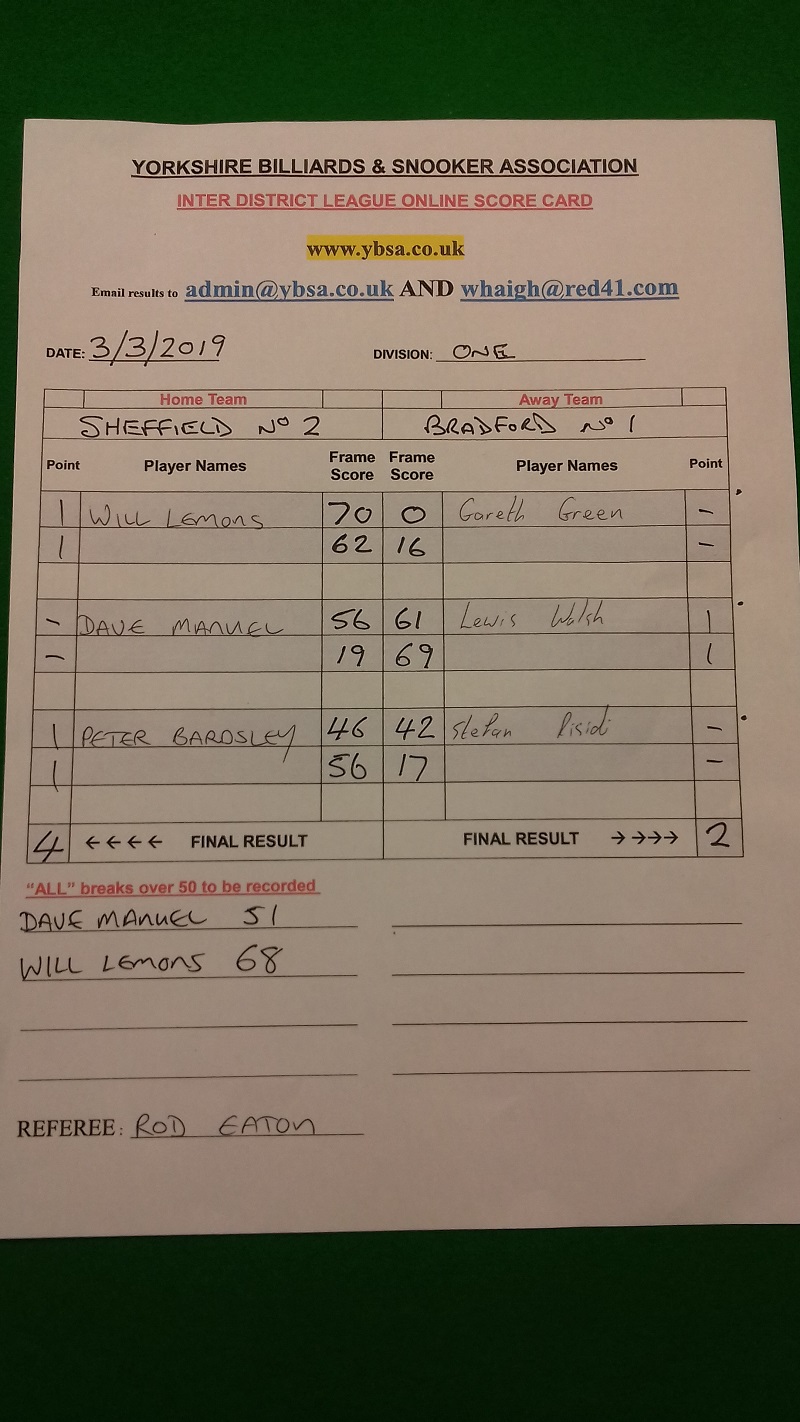 YORKSHIRE BILLIARDS & SNOOKER ASSOCIATION
INTER DISTRICT LEAGUE ONLINE SCORE CARD
www.ybsa.co.uk
Email results to admin@ybsa.co.uk AND whaigh@red41.com
DATE: 3/3/2019 DIVISION: ONE
Home Team Away Team
SHEFFIELD No 2 BRADFORD No 1
Point Player Names Frame Score Frame Score Player Names Point
1 WILL LEMONS 70 0 Gareth Green -
1 62 16 -
- DAVE MANUEL 56 61 Lewis Walsh 1
- 19 69 1
1 PETER BARDSLEY 46 42 Stefan -
1 56 17 -
4 ←←←← FINAL RESULT FINAL RESULT →→→→ 2
“ALL” breaks over 50 to be recorded
DAVE MANUEL 51
WILL LEMONS 68
REFEREE: ROD EATON